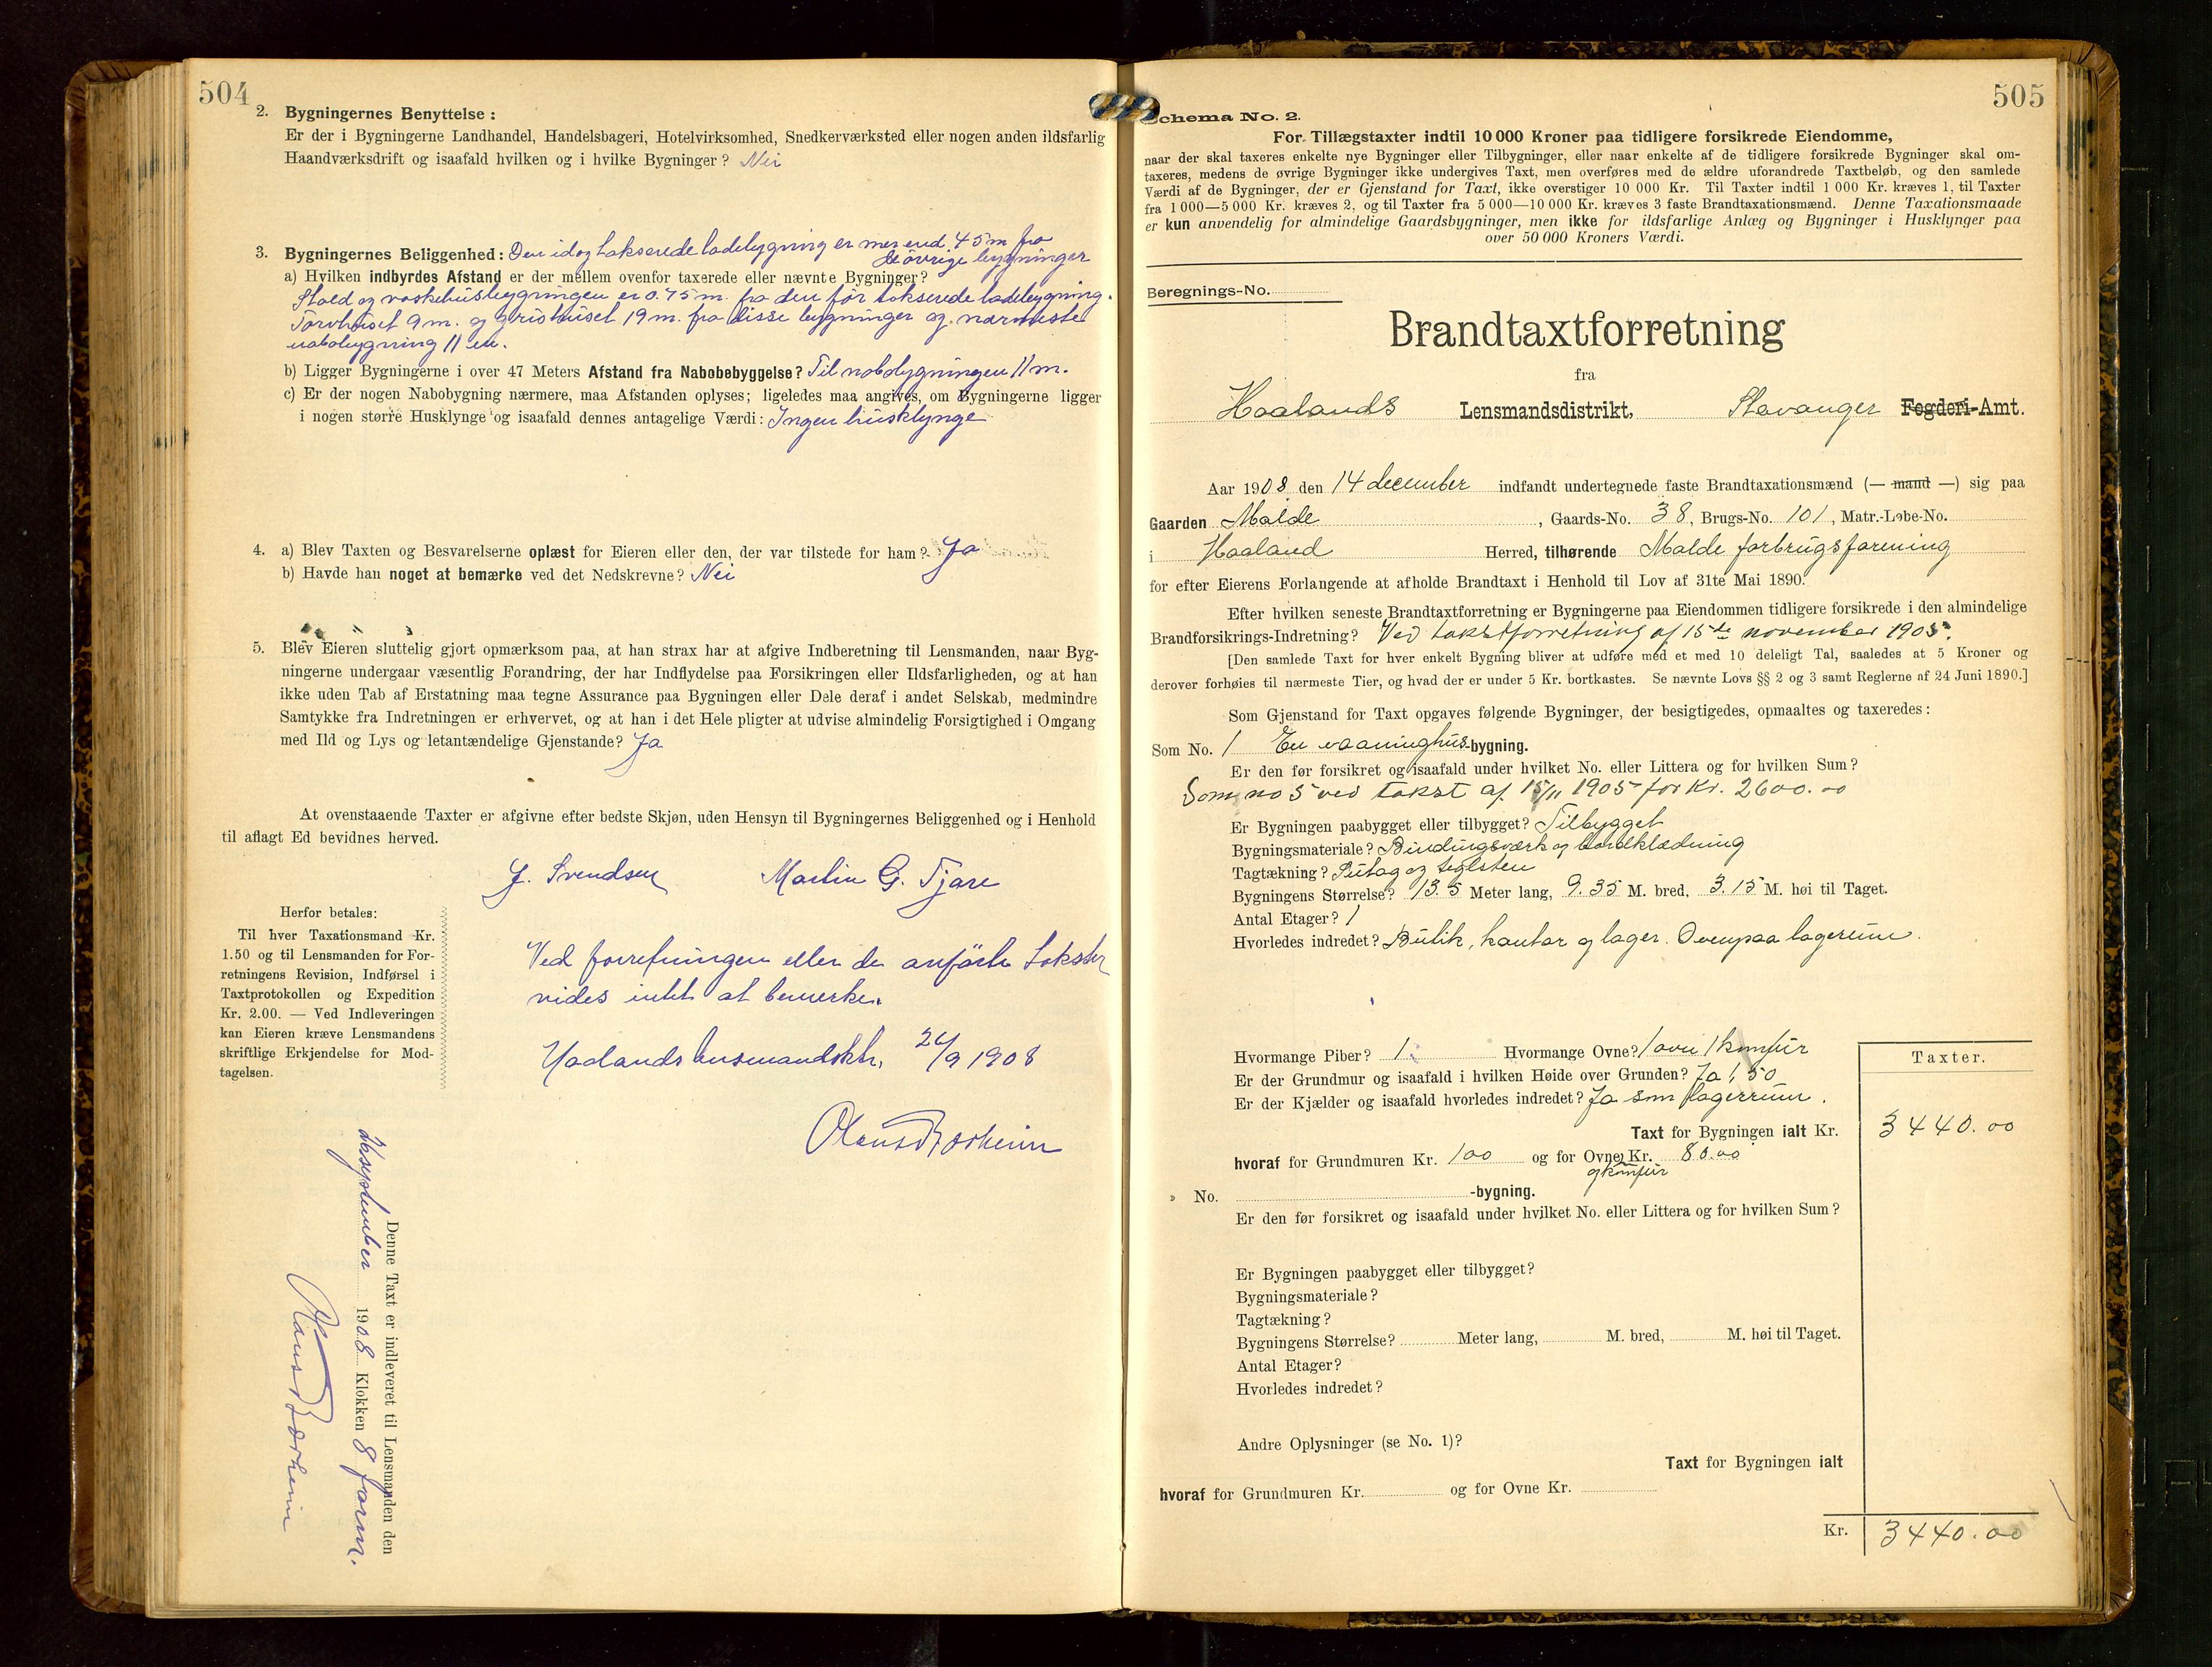 504
2. Bygningernes Benyttelse :
Er der i Bygningerne Landhandel, Handelsbageri, Hotelvirksomhed, Snedkerværksted eller nogen anden ildsfarlig
Haandværksdrift og isaafald hvilken og i hvilke Bygninger ? Nei
3. Bygningernes Beliggenhed : Den idag takserede ladebygning er mer end 45 m fra
de øvrige bygninger
a) Hvilken indbyrdes Afstand er der mellem ovenfor taxerede eller nævnte Bygninger?
Stald og vaskehusbygningen er 0.75 m. fra den før takserede ladebygning.
Torvhuset 9 m. og grishuset 19 m. fra disse bygninger og nærmeste
nabobygning 11 m.
b) Ligger Bygningerne i over 47 Meters Afstand fra Nabobebyggelse? Til nabobygningen 11 m.
c) Er der nogen Nabobygning nærmere, maa Afstanden oplyses; ligeledes maa angives, om Bygningerne ligger
i nogen større Husklynge og isaafald dennes antagelige Værdi : Ingen husklynge
4. a) Blev Taxten og Besvarelserne oplæst for Eieren eller den, der var tilstede for ham ? Ja
b) Havde han noget at bemærke ved det Nedskrevne? Nei
5. Blev Eieren sluttelig gjort opmærksom paa, at han strax har at afgive Indberetning til Lensmanden, naar Byg-
ningerne undergaar væsentlig Forandring, der har Indflydelse paa Forsikringen eller Ildsfarligheden, og at han
ikke uden Tab af Erstatning maa tegne Assurance paa Bygningen eller Dele deraf i andet Selskab, medmindre
Samtykke fra Indretningen er erhvervet, og at han i det Hele pligter at udvise almindelig Forsigtighed i Omgang
med Ild og Lys og letantændelige Gjenstande? Ja
At ovenstaaende Taxter er afgivne efter bedste Skjøn, uden Hensyn til Bygningernes Beliggenhed og i Henhold
til aflagt Ed bevidnes herved.
J. Svendsen Martin G. Tjore
Herfor betales:
Til hver Taxationsmand Kr.
1.50 og til Lensmanden for For-
retningens Revision, Indførsel i
Taxtprotokollen og Expedition
Kr. 2.00. — Ved Indleveringen
kan Eieren kræve Lensmandens
skriftlige Erkjendelse for Mod-
tagelsen.
Ved forretningen eller de anførte takster
vides intet at bemerke.
Haalands lensmandsktr, 24/9 1908
Olaus Borheim
Denne Taxt er indleveret til Lensmanden den
september 1908 Klokken 8 form.
Olaus Borheim
505
Schema No. 2.
For Tillægstaxter indtil 10 000 Kroner paa tidligere forsikrede Eiendomme,
naar der skal taxeres enkelte nye Bygninger eller Tilbygninger, eller naar enkelte af de tidligere forsikrede Bygninger skal om-
taxeres, medens de øvrige Bygninger ikke undergives Taxt, men overføres med de ældre uforandrede Taxtbeløb, og den samlede
Værdi af de Bygninger, der er Gjenstand for Taxt, ikke overstiger 10 000 Kr. Til Taxter indtil 1 000 Kr. kræves 1, til Taxter
fra 1 000—5 000 Kr. kræves 2, og til Taxter fra 5 000—10 000 Kr. kræves 3 faste Brandtaxationsmænd. Denne Taxationsmaade
er kun anvendelig for almindelige Gaardsbygninger, men ikke for ildsfarlige Anlæg og Bygninger i Husklynger paa
over 50 000 Kroners Værdi.
Beregnings-No.
Brandtaxtforretning
fra
Haalands Lensmandsdistrikt, Stavanger Fogderi-Amt.
Aar 1908 den 14 december indfandt undertegnede faste Brandtaxationsmænd (— mand —) sig paa
Gaarden Malde , Gaards-No. 38, Brugs-No. 101, Matr.-Løbe-No.
i Haaland Herred, tilhørende Malde forbrugsforening
for efter Eierens Forlangende at afholde Brandtaxt i Henhold til Lov af 31te Mai 1890.
Efter hvilken seneste Brandtaxtforretning er Bygningerne paa Eiendommen tidligere forsikrede i den almindelige
Brandforsikrings-Indretning? Ved takstforretning af 15de november 1905.
[Den samlede Taxt for hver enkelt Bygning bliver at udføre med et med 10 deleligt Tal, saaledes at 5 Kroner og
derover forhøies til nærmeste Tier, og hvad der er under 5 Kr. bortkastes. Se nævnte Lovs §§ 2 og 3 samt Reglerne af 24 Juni 1890.]
Som Gjenstand for Taxt opgaves følgende Bygninger, der besigtigedes, opmaaltes og taxeredes :
Som No. 1 En vaaninghus-bygning.
Er den før forsikret og isaafald under hvilket No. eller Littera og for hvilken Sum ?
Som no 5 ved takst af 15/11 1905 for Kr. 2600.00
Er Bygningen paabygget eller tilbygget? Tilbygget
Bygningsmateriale? Bindingsværk og bordklædning
Tagtækning? Sutag og teglsten
Bygningens Størrelse? 13.5 Meter lang, 9.35 M. bred, 3.15 M. høi til Taget.
Antal Etager? 1
Hvorledes indredet? Butik, kontor og lager. Ovenpaa lagerrum.
Hvormange Piber? 1. Hvormange Ovne? 1 ovn 1 komfür
Er der Grundmur og isaafald i hvilken Høide over Grunden? Ja 1,50
Er der Kjælder og isaafald hvorledes indredet? Ja som lagerrum.
Taxter.
Taxt for Bygningen ialt Kr. 3440.00
hvoraf for Grundmuren Kr. 100 og for Ovne Kr. 80.00
og komfür
No. -bygning.
Er den før forsikret og isaafald under hvilket No. eller Littera og for hvilken Sum ?
Er Bygningen paabygget eller tilbygget?
Bygningsmateriale ?
Tagtækning ?
Bygningens Størrelse? Meter lang, M. bred, M. høi til Taget.
Antal Etager?
Hvorledes indredet ?
Andre Oplysninger (se No. 1)?
Taxt for Bygningen ialt
hvoraf for Grundmuren Kr. og for Ovne Kr.
Kr. 3440.00